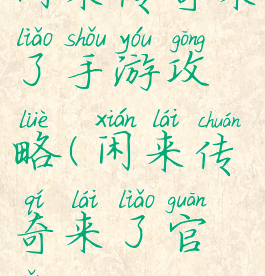 闲来传奇来
liǎo shǒu yóu gōng
了手游攻
lüè xián lái chuán
略(闲来传
qí lái liǎo guān
奇来了官